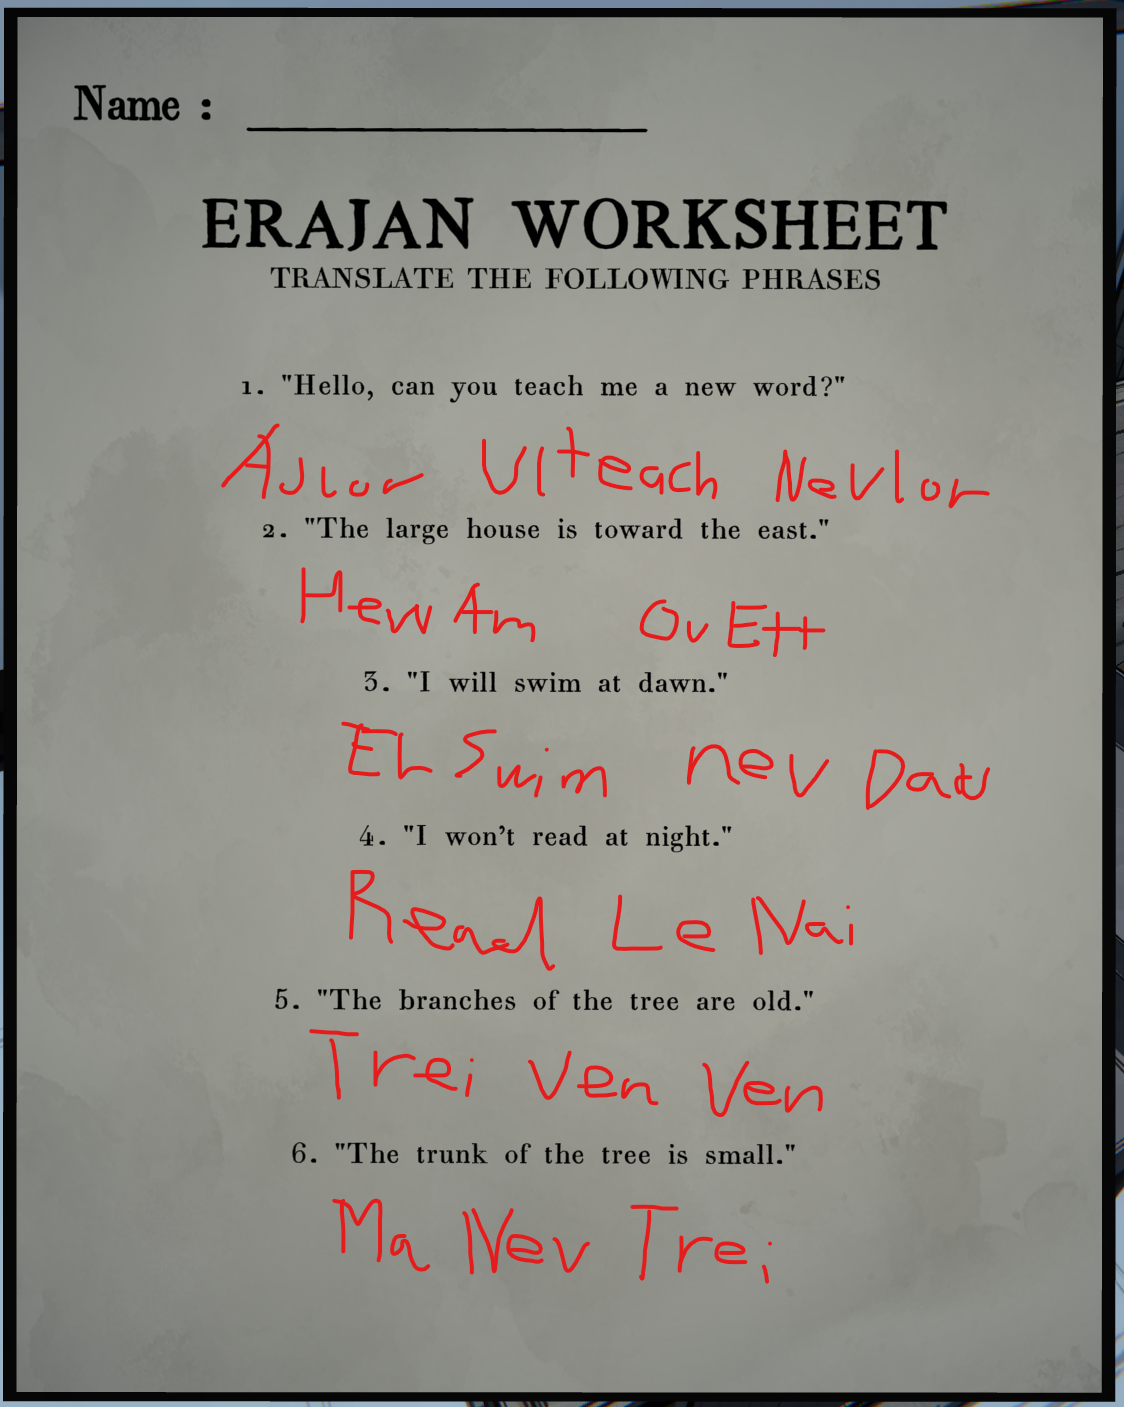 Name :
ERAJAN WORKSHEET
TRANSLATE THE FOLLOWING PHRASES
1. "Hello, can you teach me a new word?"
Ajlor Ulteach Nevlor
2. "The large house is toward the east."
Hew Am Ov Ett
3. "I will swim at dawn."
El Swim nev Daw
4. "I won't read at night."
Read Le Nai
5. "The branches of the tree are old."
Trei Ven Ven
6. "The trunk of the tree is small."
Ma Nev Trei